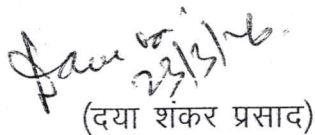 23/3/26
(दया शंकर प्रसाद)